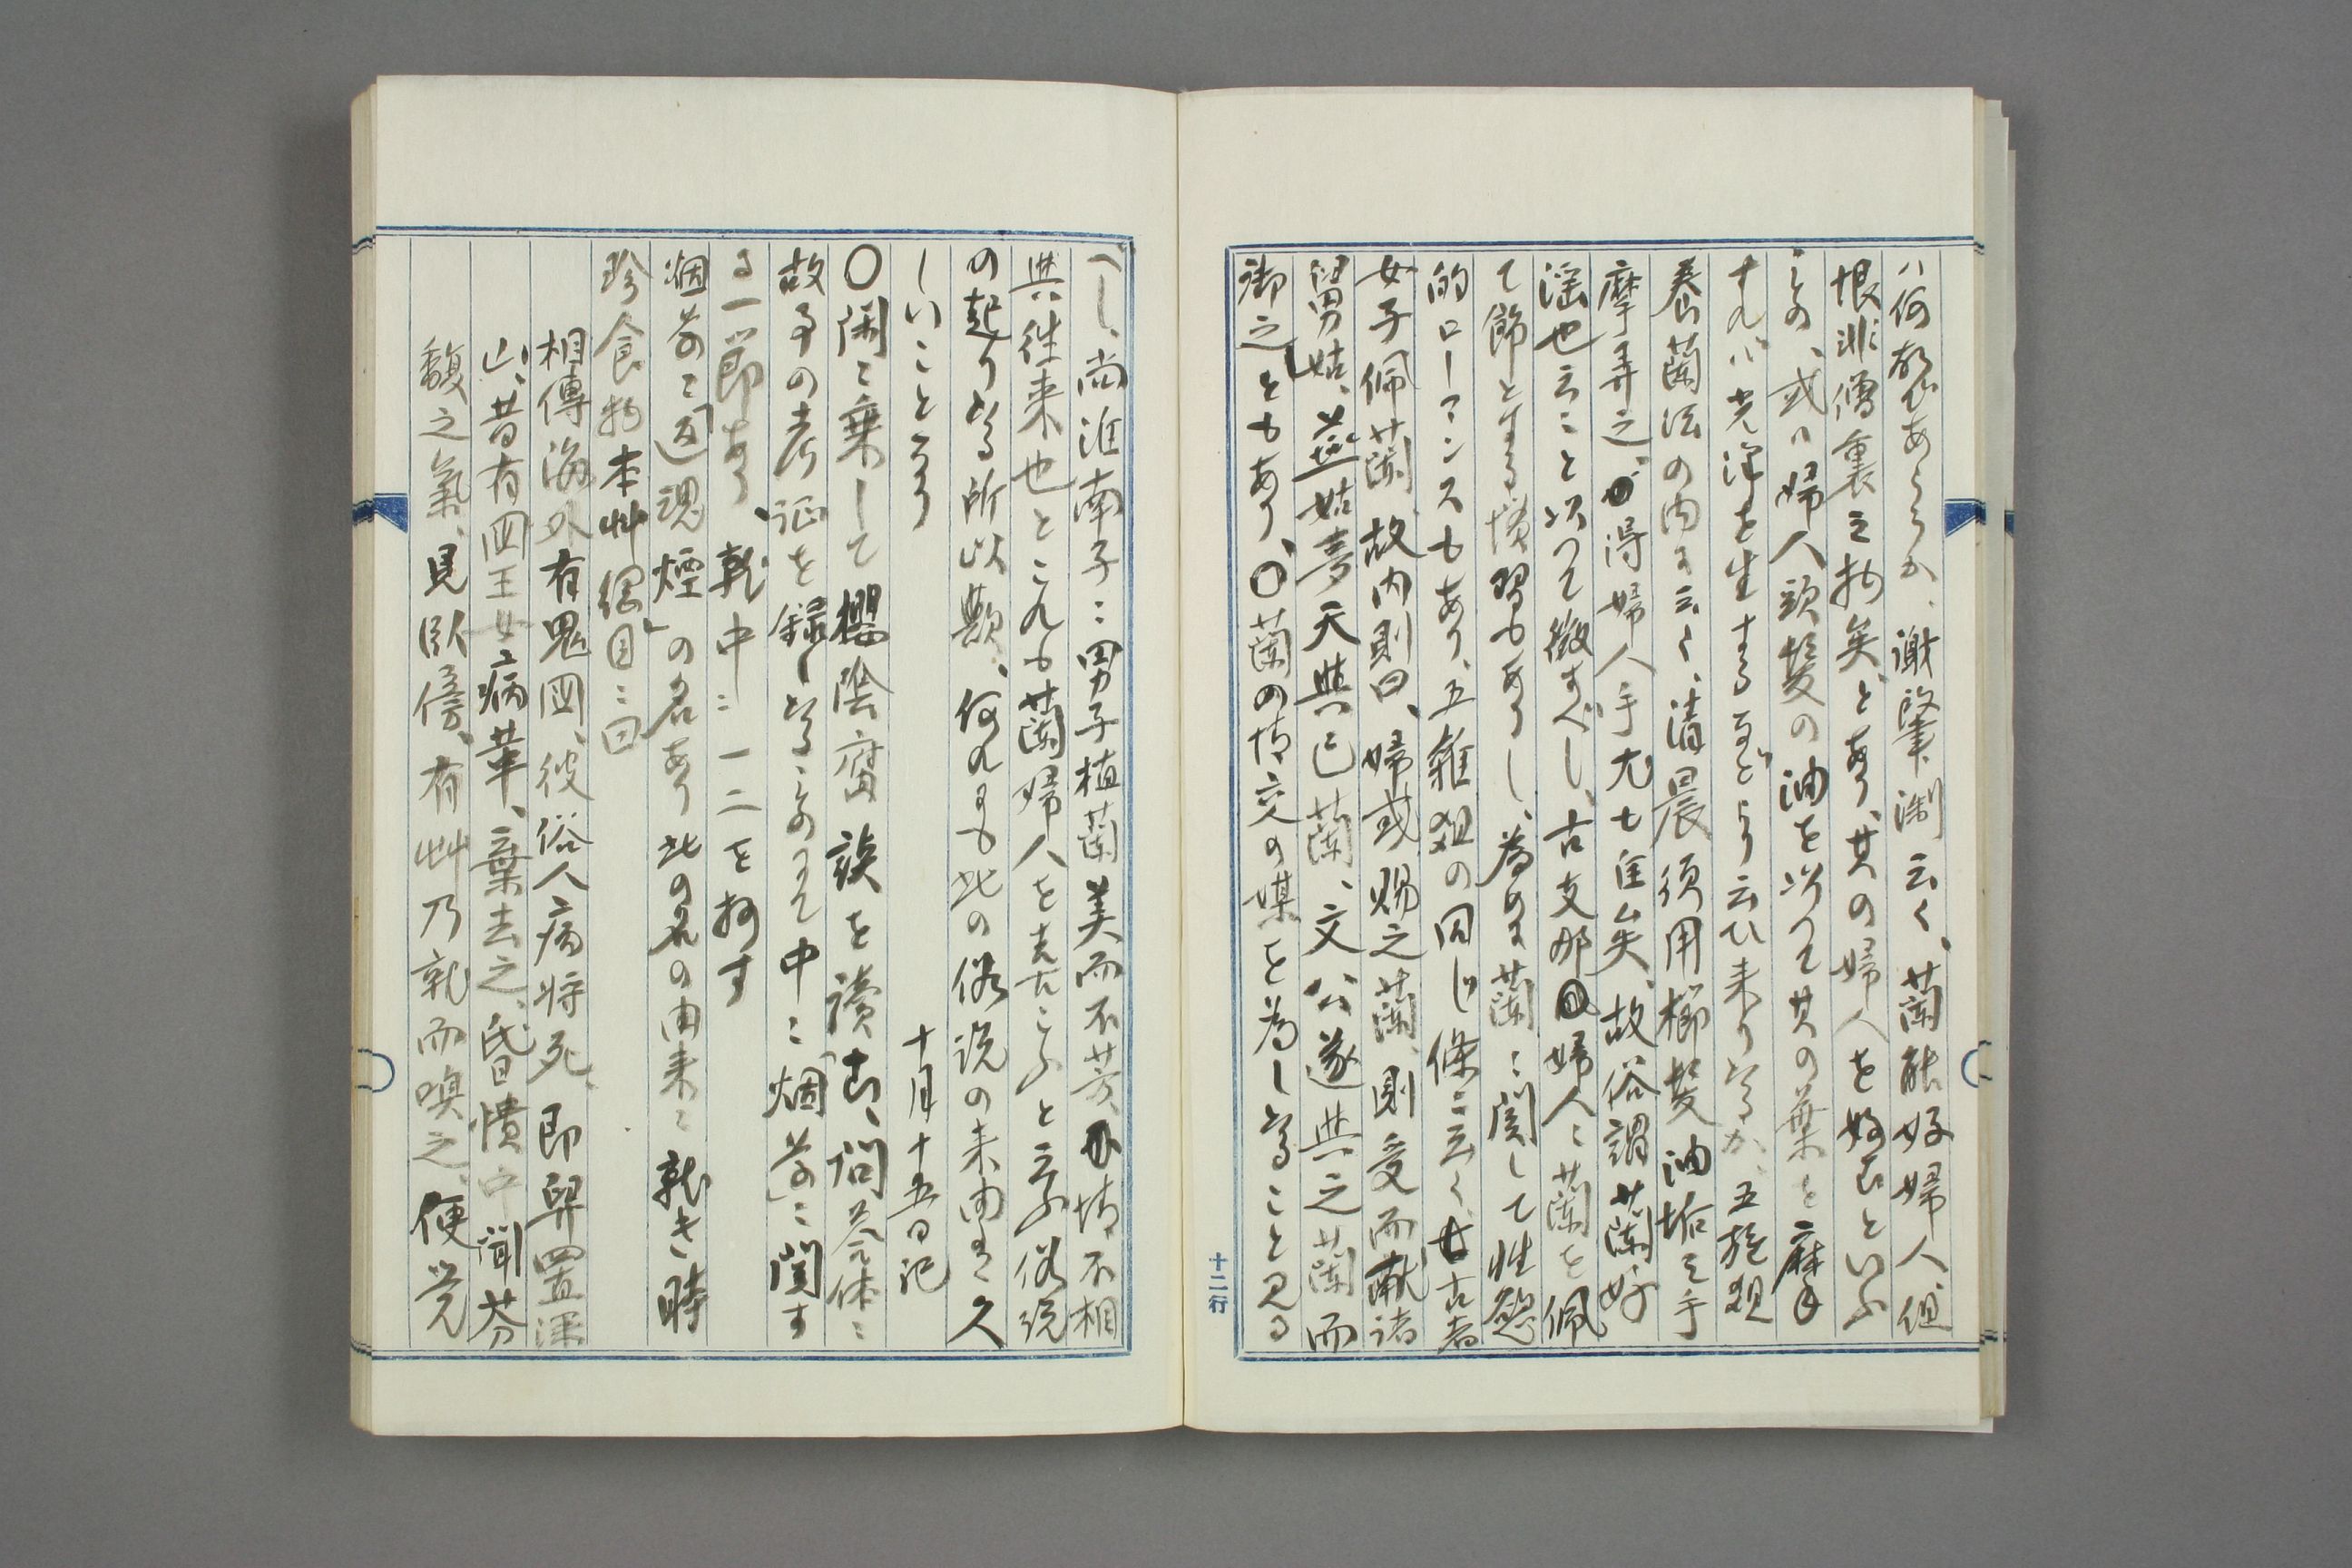 ハ何故であらうか、謝肇淛云く、蘭能好婦人、但
恨非僧裏之物矣、とあり、其の婦人を好むといふ
ミの、或ハ婦人頭髪の油を以つて其の葉を摩
すれバ光沢を生ずるなどより云ひ来りたるか、五雑俎
養蘭法の内に云く、清晨須用櫛髪油垢之手
摩弄之、得婦人手尤七佳矣、故俗謂蘭好
淫也云こと以つて徴すべし、古支那婦人ニ蘭を佩
て飾とする慣習もありし、為めに蘭ニ関して性慾
的ローマンスもあり、五雑俎の同じ條ニ云く、古者
女子佩蘭、故内則曰、婦或賜之蘭、則受而献諸
舅姑、燕姞夢天與己蘭、文公遂與之蘭而
御之」ともあり、〇蘭の情交の媒を為したること見る
べし、尚淮南子ニ男子植蘭美而不芳、情不相
與往来也とこれも蘭婦人を喜ふこふと云ふ俗説
の起りたる所以歟、何れにも此の俗説の来由は久
しいことなり
十月十五日記
〇閑ニ乗して櫻陰腐談を讀む、問答体ニ
故事の考証を録したるミのにて中ニ「烟草」ニ関す
る一節あり、乾中ニ一二を抄す
烟草ニ「返魂煙」の名あり此の名の由来ニ就き時
珍食物本艸綱目ニ曰
相傳海外有鬼国、彼俗人病将死、即舁置深
山、昔有国王女病革、棄去之、昏憒中聞芬
馥之氣、見臥傍、有艸乃就而嗅之、便覚
十二行